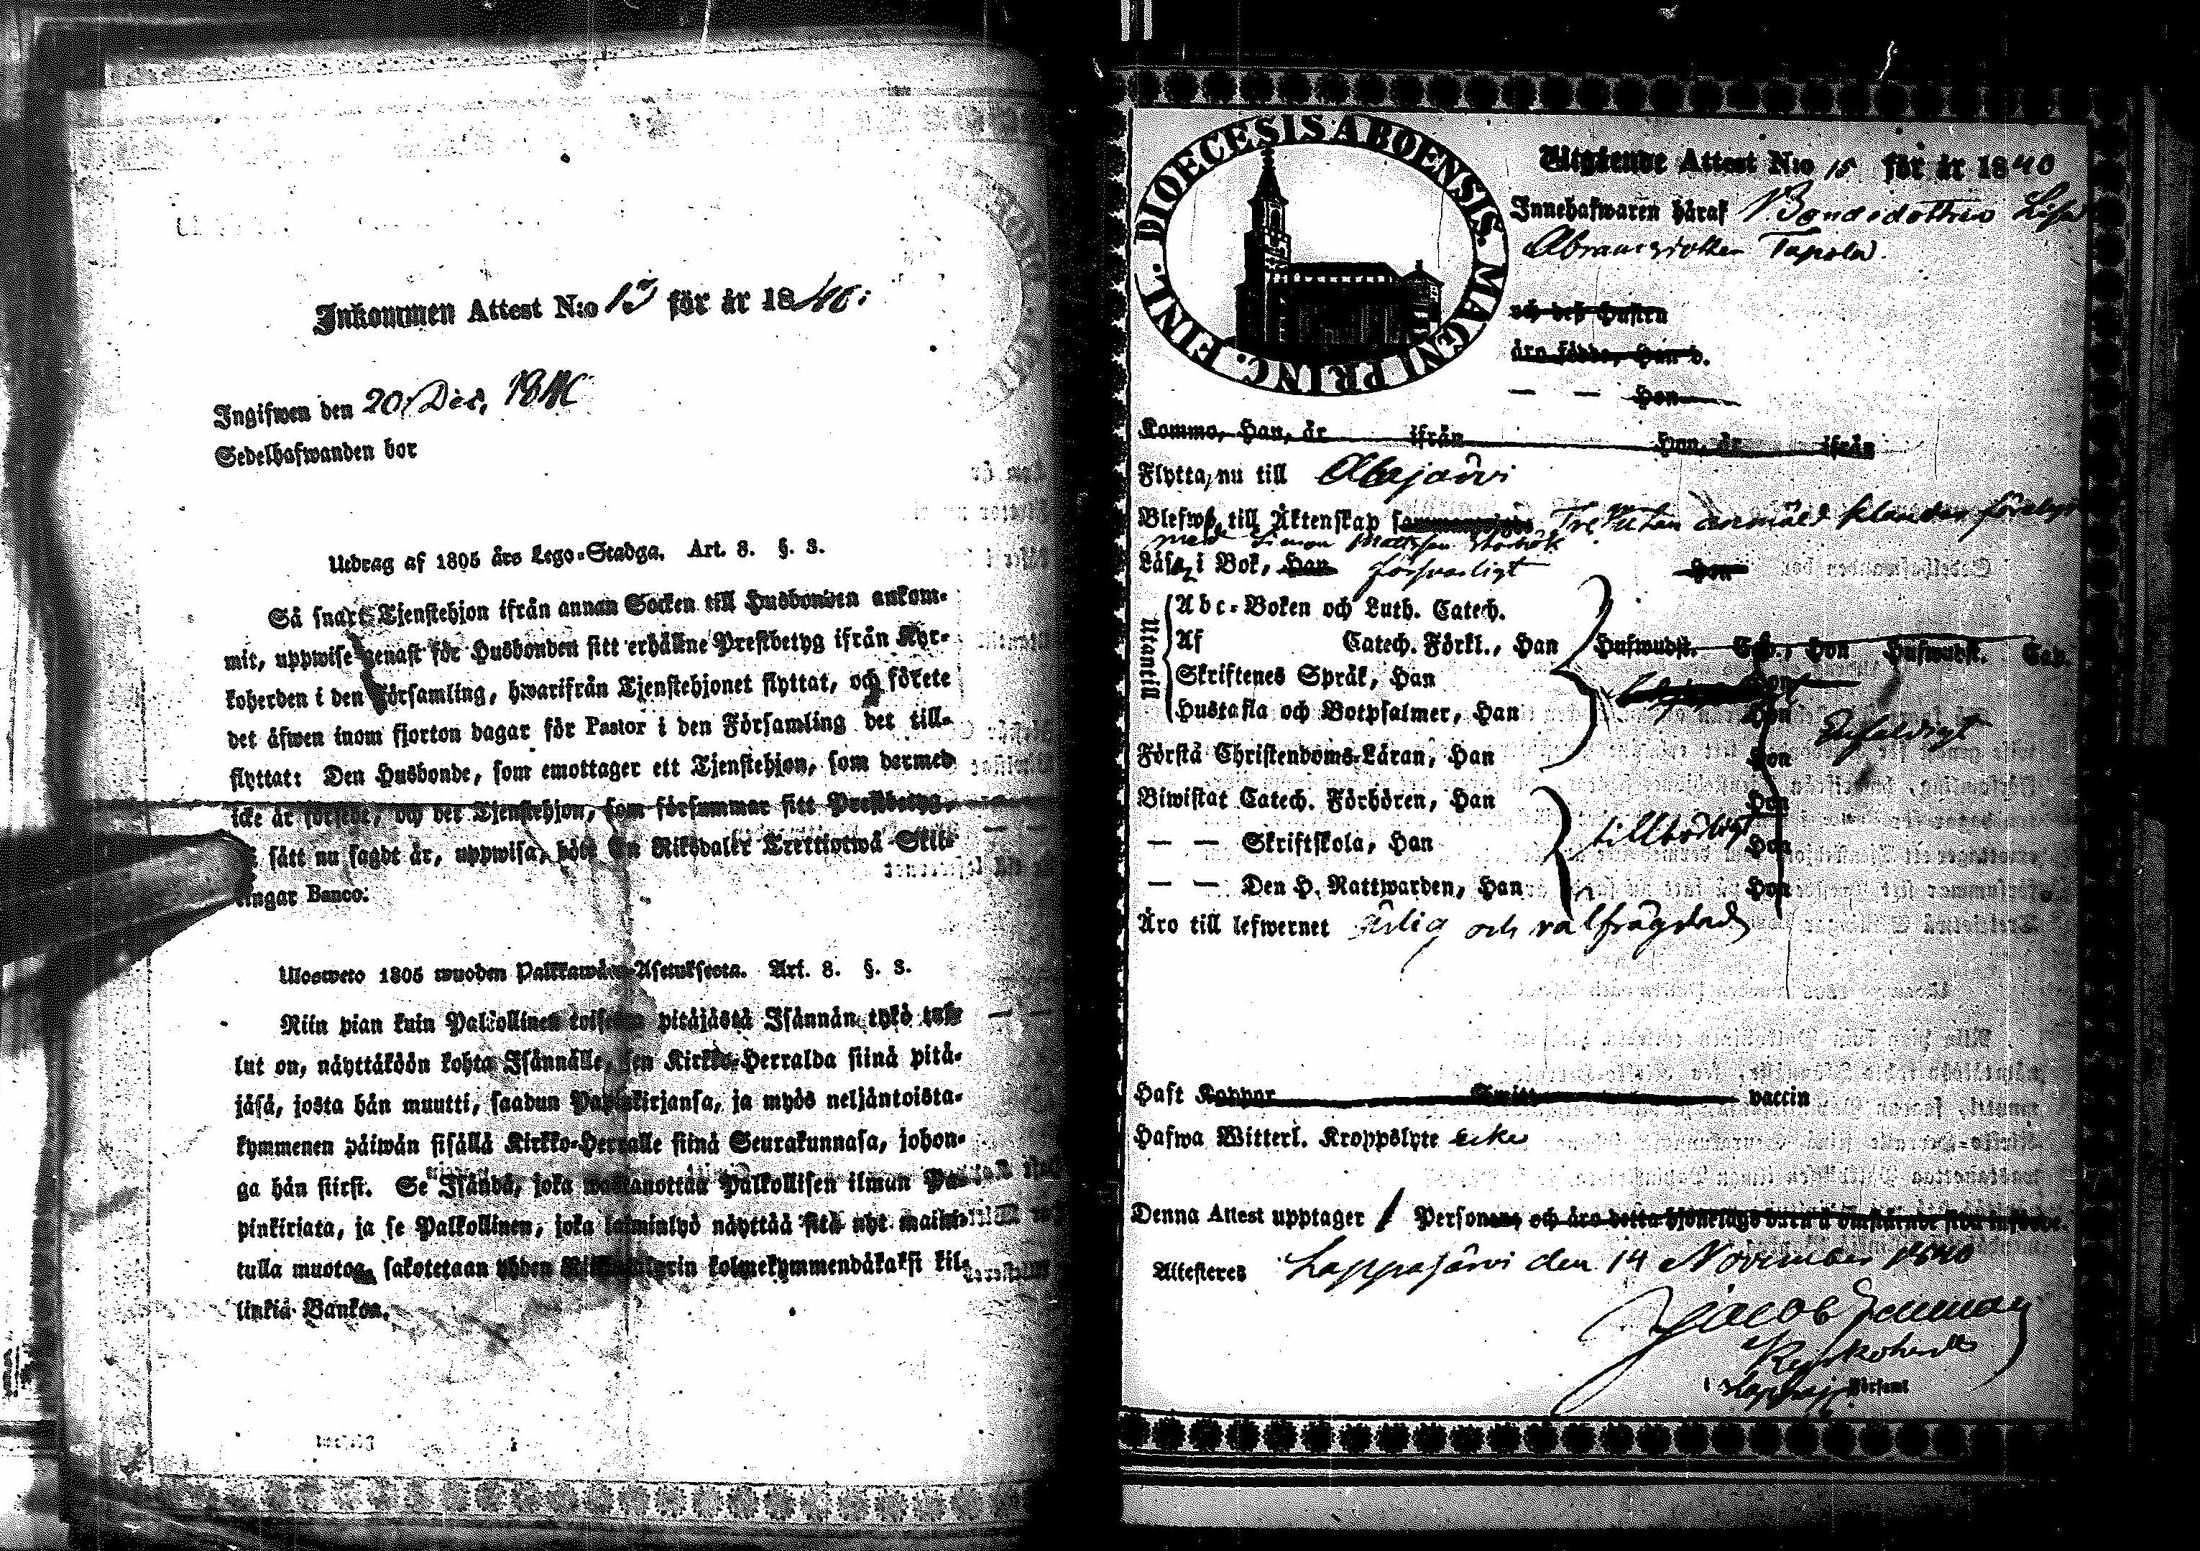 Inkommen Attest N:o 13 för år 1840:
Ingifwen den 20 Dec. 1840
Sedelhafwanden bor
Utdrag af 1805 års Lego-Stadga. Art. 8. §. 3.
Så snart Tjenstehjon ifrån annan Socken till Husbonden ankom-
mit, uppwise genast för Husbonden sitt erhållne Prestbetyg ifrån Kyr-
koherden i den Församling, hwarifrån Tjenstehjonet flyttat, och förete
det äfwen inom fjorton dagar för Pastor i den Församling det till-
flyttat: Den Husbonde, som emottager ett Tjenstehjon, som dermed
icke är försedt, och det Tjenstehjon, som försummar sitt Prestbetyg,
sätt nu sagdt är, uppwisa, böte En Riksdaler Trettiotwå Skil-
lingar Banco.
Ulosweto 1805 wuoden Palkkawäen-Asetuksesta. Art. 8. §. 3.
Niin pian kuin Palkollinen toisesta pitäjästä Isännän tykö tul-
lut on, näyttäköön kohta Isännälle, sen Kirkko-Herralda siinä pitä-
jäsä, josta hän muutti, saadun Papinkirjansa, ja myös neljäntoista-
kymmenen päiwän sisällä Kirkko-Herralle siinä Seurakunnasa, johon-
ga hän siirsi. Se Isändä, joka wastanottaa Palkollisen ilman Pa-
pinkirjata, ja se Palkollinen, joka laiminlyö näyttää sitä nyt mainitulla
tulla muotoa, sakotetaan yhden Riksdalerin kolmekymmendäkaksi kil-
linkiä Bankoa.
DIOECESIS ABOENSIS. MAGNI PRINC. FINL.
Utgående Attest N:o 15 för år 1840
Innehafwaren häraf Bondedottren Lisa
Abramsdotter Tapola.
och des Hustru
äro födde, Han d.
— — Hon
Komme, Han, år ifrån Hon, år ifrån
Flytta, nu till Alajärvi
Blefwo, till Äktenskap sammanwigde, Fri Utan anmäld klander
med Simon Mattsson
Läsa, i Bok, Han försvarligt Hon
Utantill
Abc-Boken och Luth. Catech.
Af Catech. Förkl., Han Hufwudst. Cap., Hon Hufwudst. Cap.
Skriftenes Språk, Han Hon
Hustafla och Botpsalmer, Han Hon Enfaldigt
Förstå Christendoms-Läran, Han Hon
Biwistat Catech. Förhören, Han Hon
— — Skriftskola, Han tillbörligt Hon
— — Den H. Nattwarden, Han Hon
Äro till lefwernet ärlig och välfrägdad
Haft Koppor Smitt vaccin
Hafwa Witterl. Kroppslyte icke
Denna Attest upptager 1 Personer, och äro detta hjonelags barn å omstående sida införde.
Attesteres Lappajärvi den 14 November 1840
Jacob
Kyrkoherde
i Lappaj. Församl